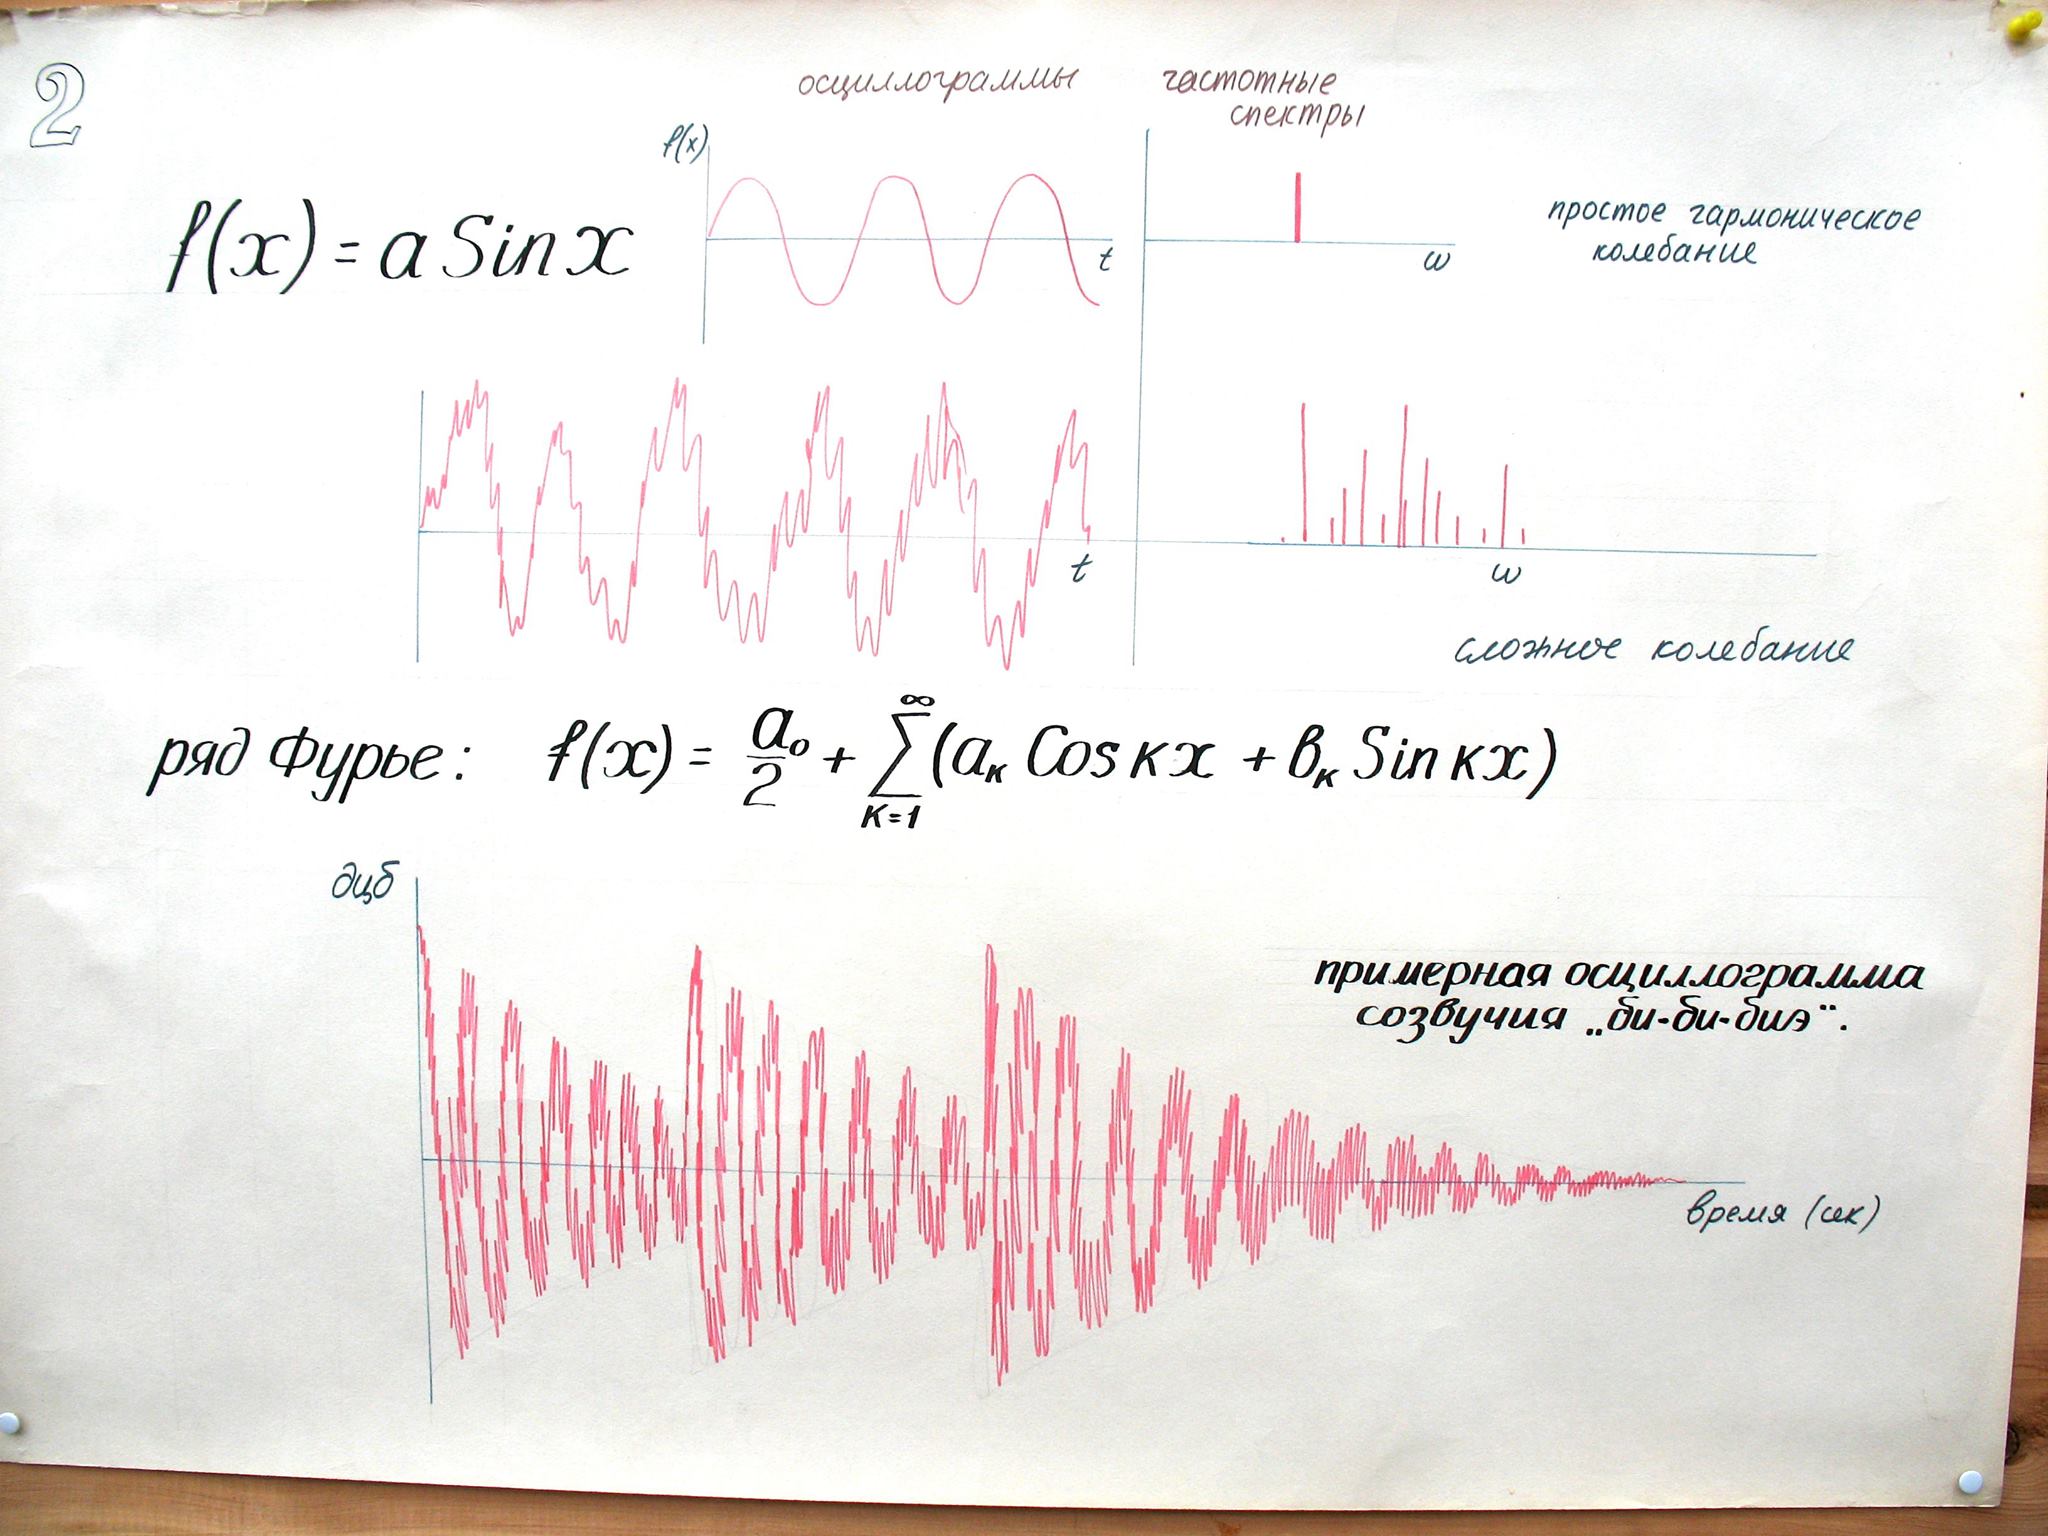 2
осциллограммы
частотные
спектры
f(x)
f(x) = a Sin x
t
ω
простое гармоническое
колебание
t
ω
сложное колебание
ряд Фурье: f(x) = a₀/2 + ∞∑K=1 (aₖ Cos кx + вₖ Sin кx)
дцб
примерная осциллограмма
созвучия „би-би-биэ“.
время (сек)